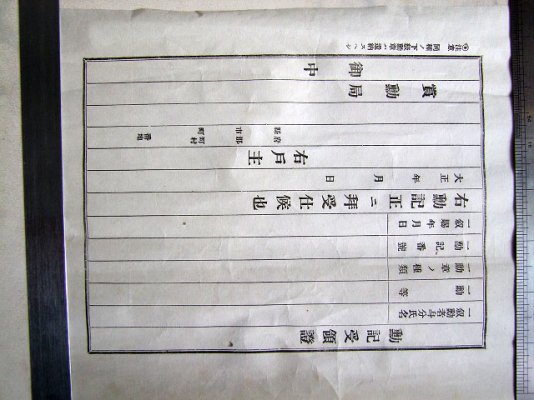 勲記受領證
一叙勲者身分氏名
一勲等
一勲章ノ種類
一勲記番號
一叙賜年月日
右勲記正ニ拝受仕候也
大正 年 月 日
右戸主
縣府 郡市 町村 番地
賞勲局
御中
◎注意 同種ノ下級勲章ハ還納スヘシ